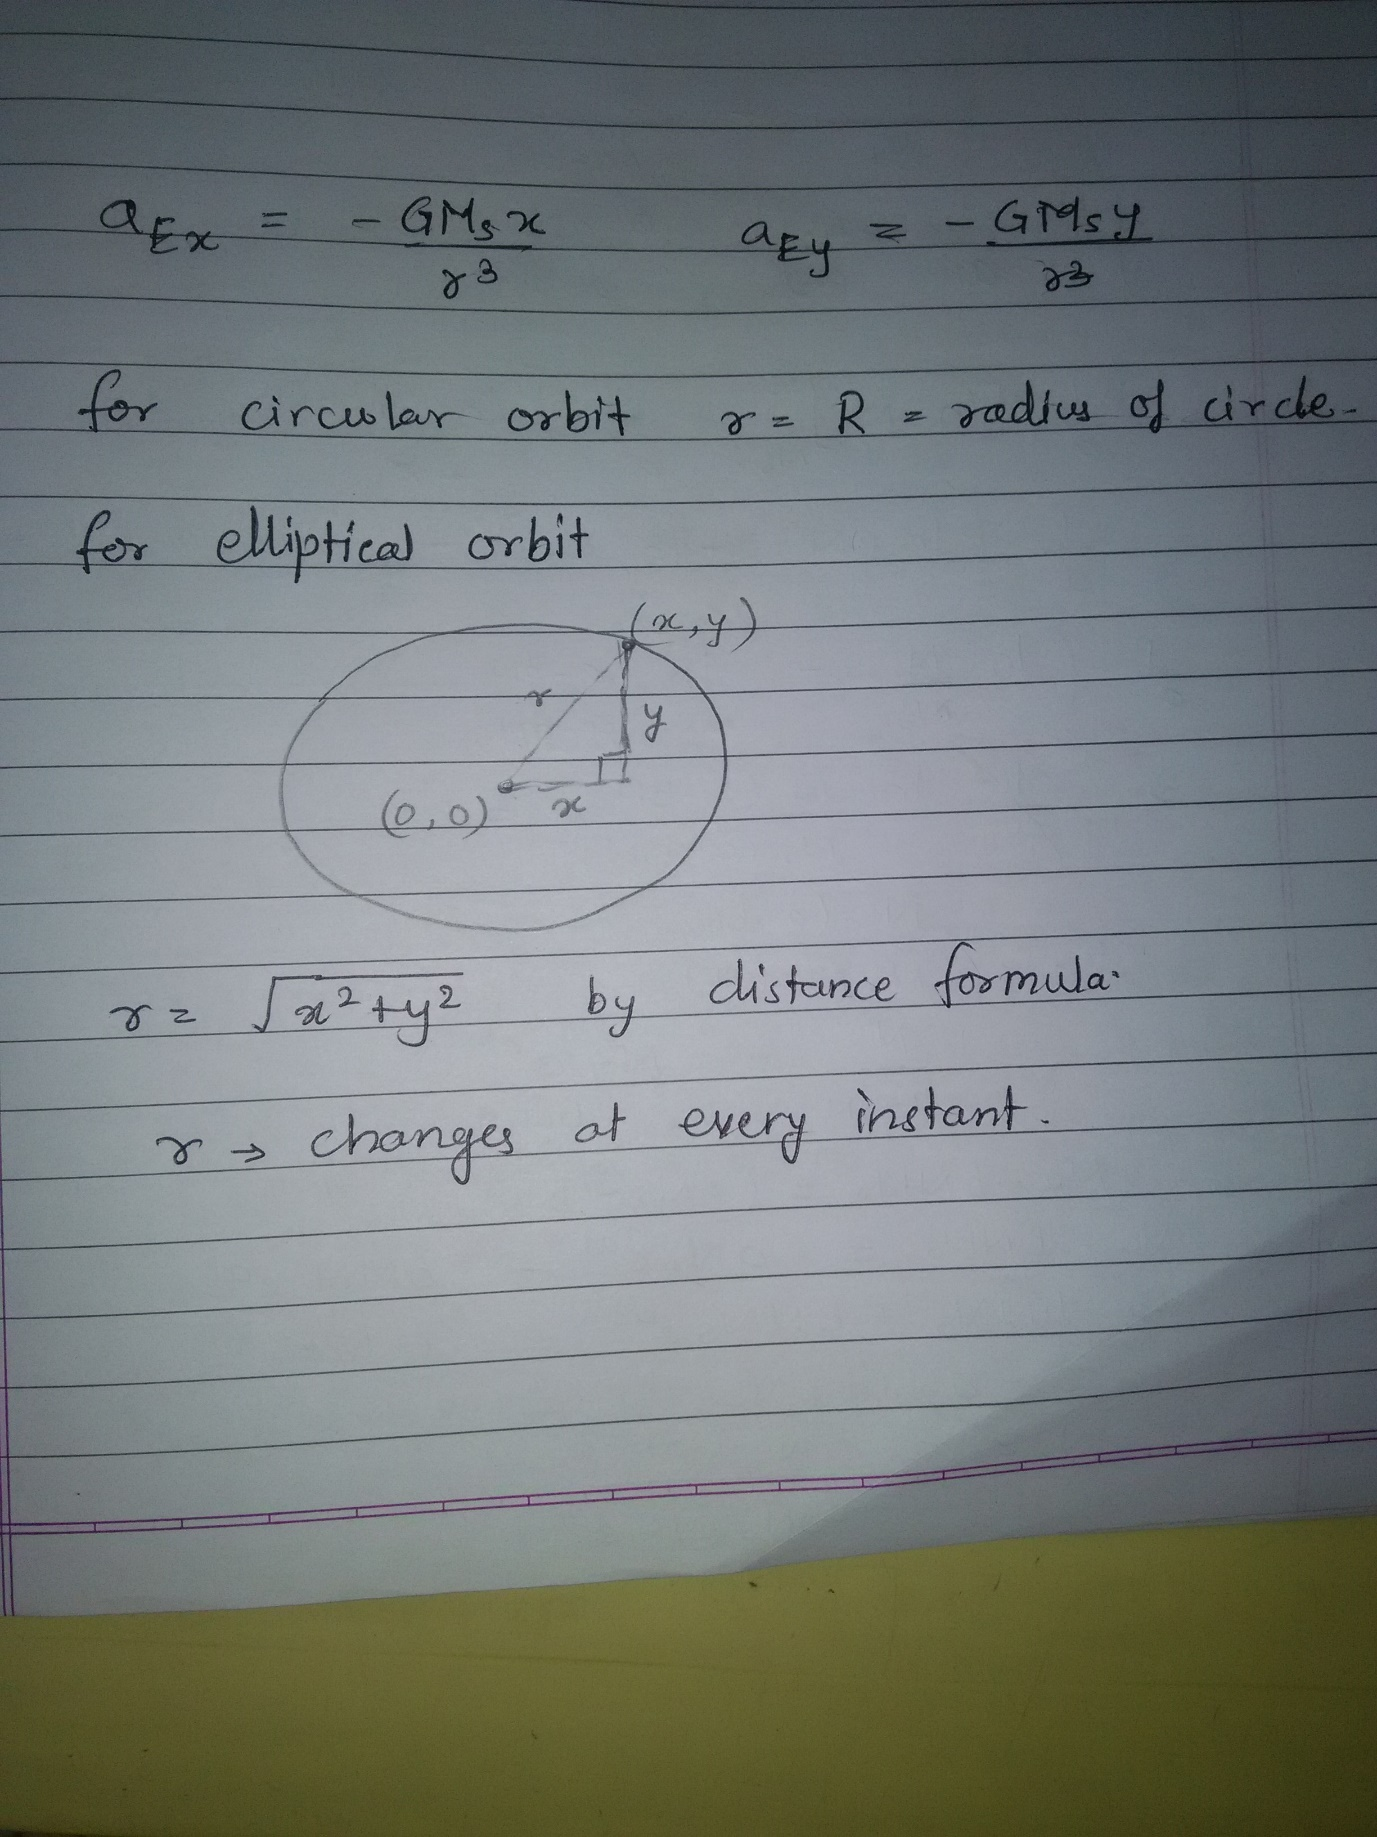 aEx = - GMs x / r3    aEy = - GMs y / r3
for circular orbit r = R = radius of circle.
for elliptical orbit
(x, y)
r
y
(0, 0)
x
r = √x2+y2 by distance formula.
r → changes at every instant.